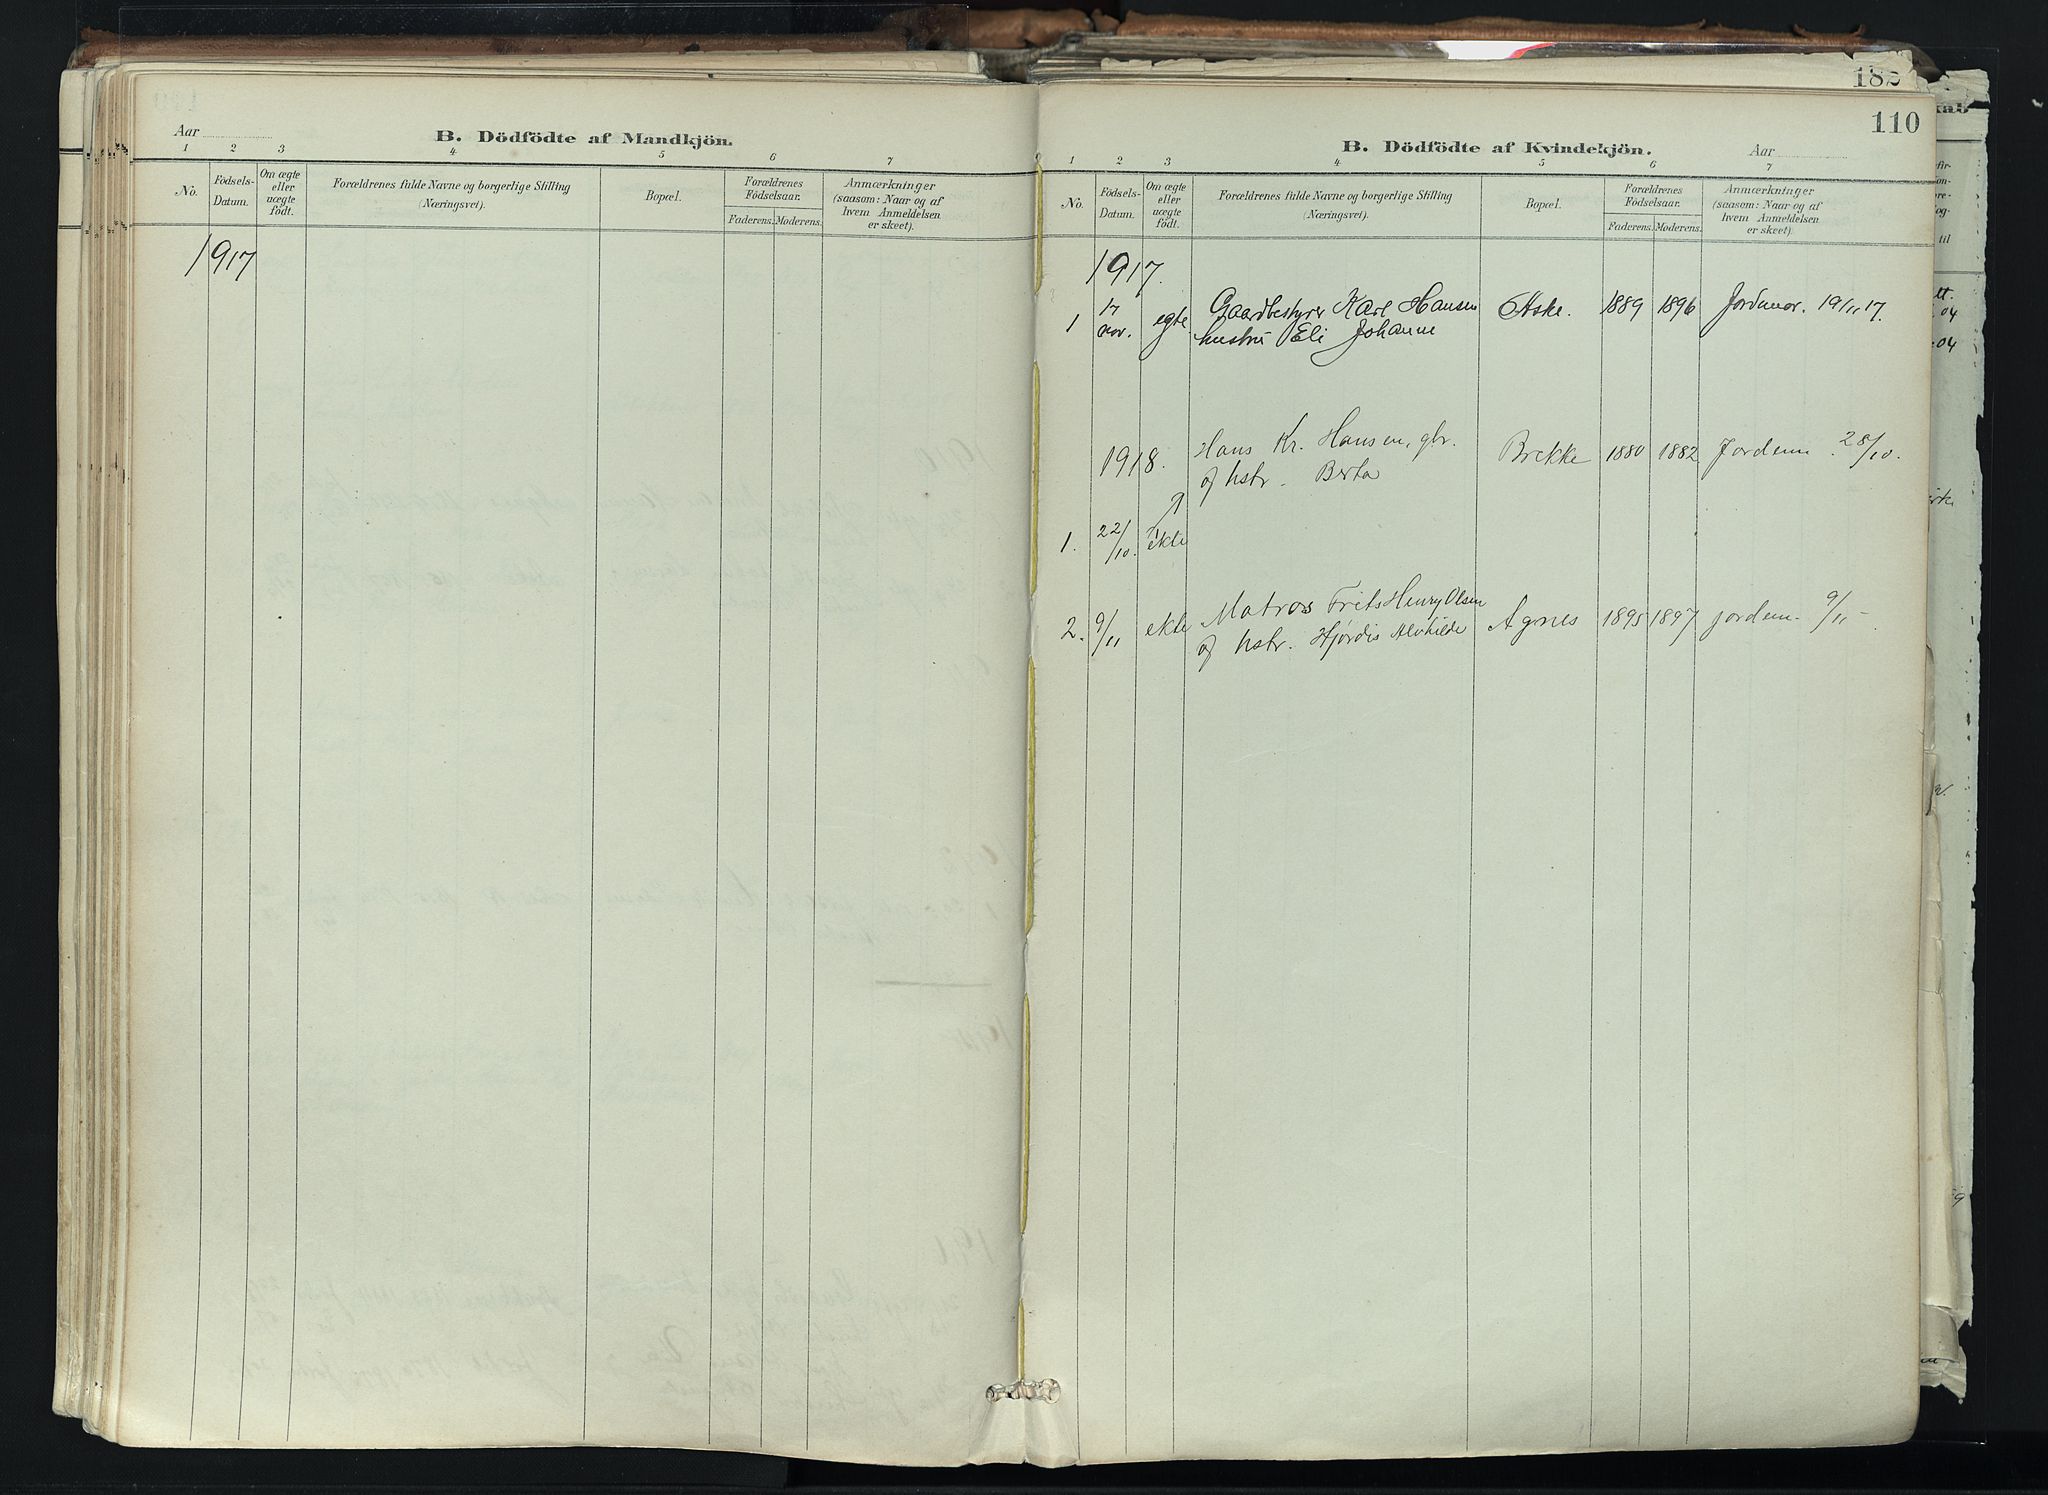 182
110
Aar
B. Dödfödte af Mandkjön.
1 2 3 4 5 6 7
No.
Födsels-Datum.
Om ægte eller uægte födt.
Forældrenes fulde Navne og borgerlige Stilling (Næringsvei).
Bopæl.
Forældrenes Födselsaar.
Faderens. Moderens.
Anmærkninger (saasom: Naar og af hvem Anmeldelsen er skeet).
1917
B. Dödfödte af Kvindekjön.
Aar
1 2 3 4 5 6 7
No.
Födsels-Datum.
Om ægte eller uægte födt.
Forældrenes fulde Navne og borgerlige Stilling (Næringsvei).
Bopæl.
Forældrenes Födselsaar.
Faderens. Moderens.
Anmærkninger (saasom: Naar og af hvem Anmeldelsen er skeet).
1917.
1 17 nov. egte Gaardbestyrer Karl Hansen Aske. 1889 1896 Jordmor. 19/11 17.
hustru Eli Johanne
1918. Hans Kr. Hansen, gbr. Brekke 1880 1882 Jordem. 28/10.
og hstr. Berta
1. 22/10. ekte
2. 9/11 ekte Matros Frits Henry Olsen Agnes 1895 1897 jordem. 9/11 -
og hstr. Hjørdis Alvhilde